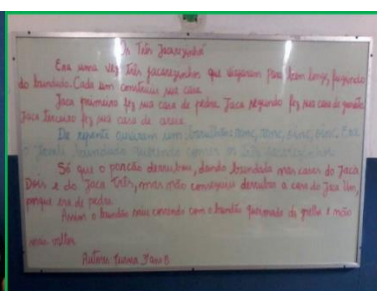 Os Três Jacarezinhos
Era uma vez três jacarezinhos que viajaram para bem longe, fugindo
do bandido. Cada um construiu sua casa.
Jaca primeiro fez sua casa de pedra. Jaca segundo fez sua casa de
Jaca terceiro fez sua casa de areia.
De repente ouviram um barulhão: ronc, ronc, Era
bundudo querendo comer os três jacarezinhos.
Só que o porcão derrubou, dando bundada nas casas do Jaca
Dois e do Jaca Três, mas não conseguiu derrubar a casa do Jaca Um,
porque era de pedra.
Assim o saiu correndo com o bundão queimado da grelha e não
mais voltou.
Autores: turma 3º ano B